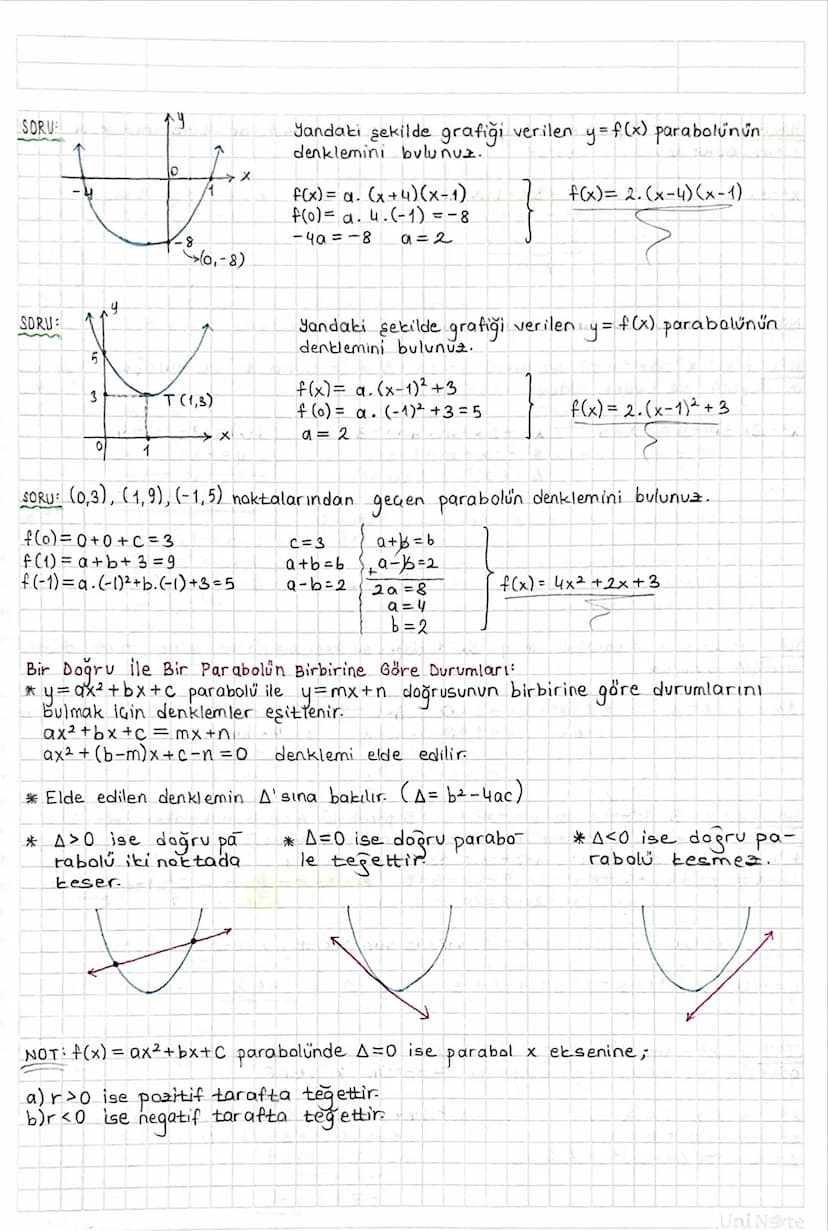 SORU:
y
0
x
-4
1
-8
(0,-8)
Yandaki şekilde grafiği verilen y=f(x) parabolünün
denklemini bulunuz.
f(x)= a. (x+4)(x-1)
f(0)= a. 4.(-1) = -8
-4a = -8 a = 2
f(x)= 2.(x-4)(x-1)
SORU:
y
5
3
T(1,3)
x
0
1
Yandaki şekilde grafiği verilen y= f(x) parabolünün
denklemini bulunuz.
f(x)= a.(x-1)² +3
f(0)= a. (-1)² +3 = 5
a = 2
f(x) = 2.(x-1)² + 3
SORU: (0,3), (1,9), (-1,5) noktalarından geçen parabolün denklemini bulunuz.
f(0)= 0+0+c = 3
f(1)= a+b+3 = 9
f(-1)=a.(-1)²+b.(-1)+3=5
c=3
a+b=6
a-b=2
a+b=6
+a-b=2
2a=8
a=4
b=2
f(x) = 4x² +2x +3
Bir Doğru İle Bir Parabolün Birbirine Göre Durumları:
* y=ax²+bx+c parabolü ile y=mx+n doğrusunun birbirine göre durumlarını
bulmak için denklemler eşitlenir.
ax²+bx+c = mx+n
ax²+(b-m)x+c-n=0 denklemi elde edilir.
* Elde edilen denklemin Δ'sına bakılır. (Δ= b²-4ac)
* Δ>0 ise doğru pa-
rabolü iki noktada
keser.
* Δ=0 ise doğru parabo-
le teğettir.
* Δ<0 ise doğru pa-
rabolü kesmez.
NOT: f(x) = ax²+bx+c parabolünde Δ=0 ise parabol x eksenine;
a) r>0 ise pozitif tarafta teğettir.
b) r<0 ise negatif tarafta teğettir.
UniNote